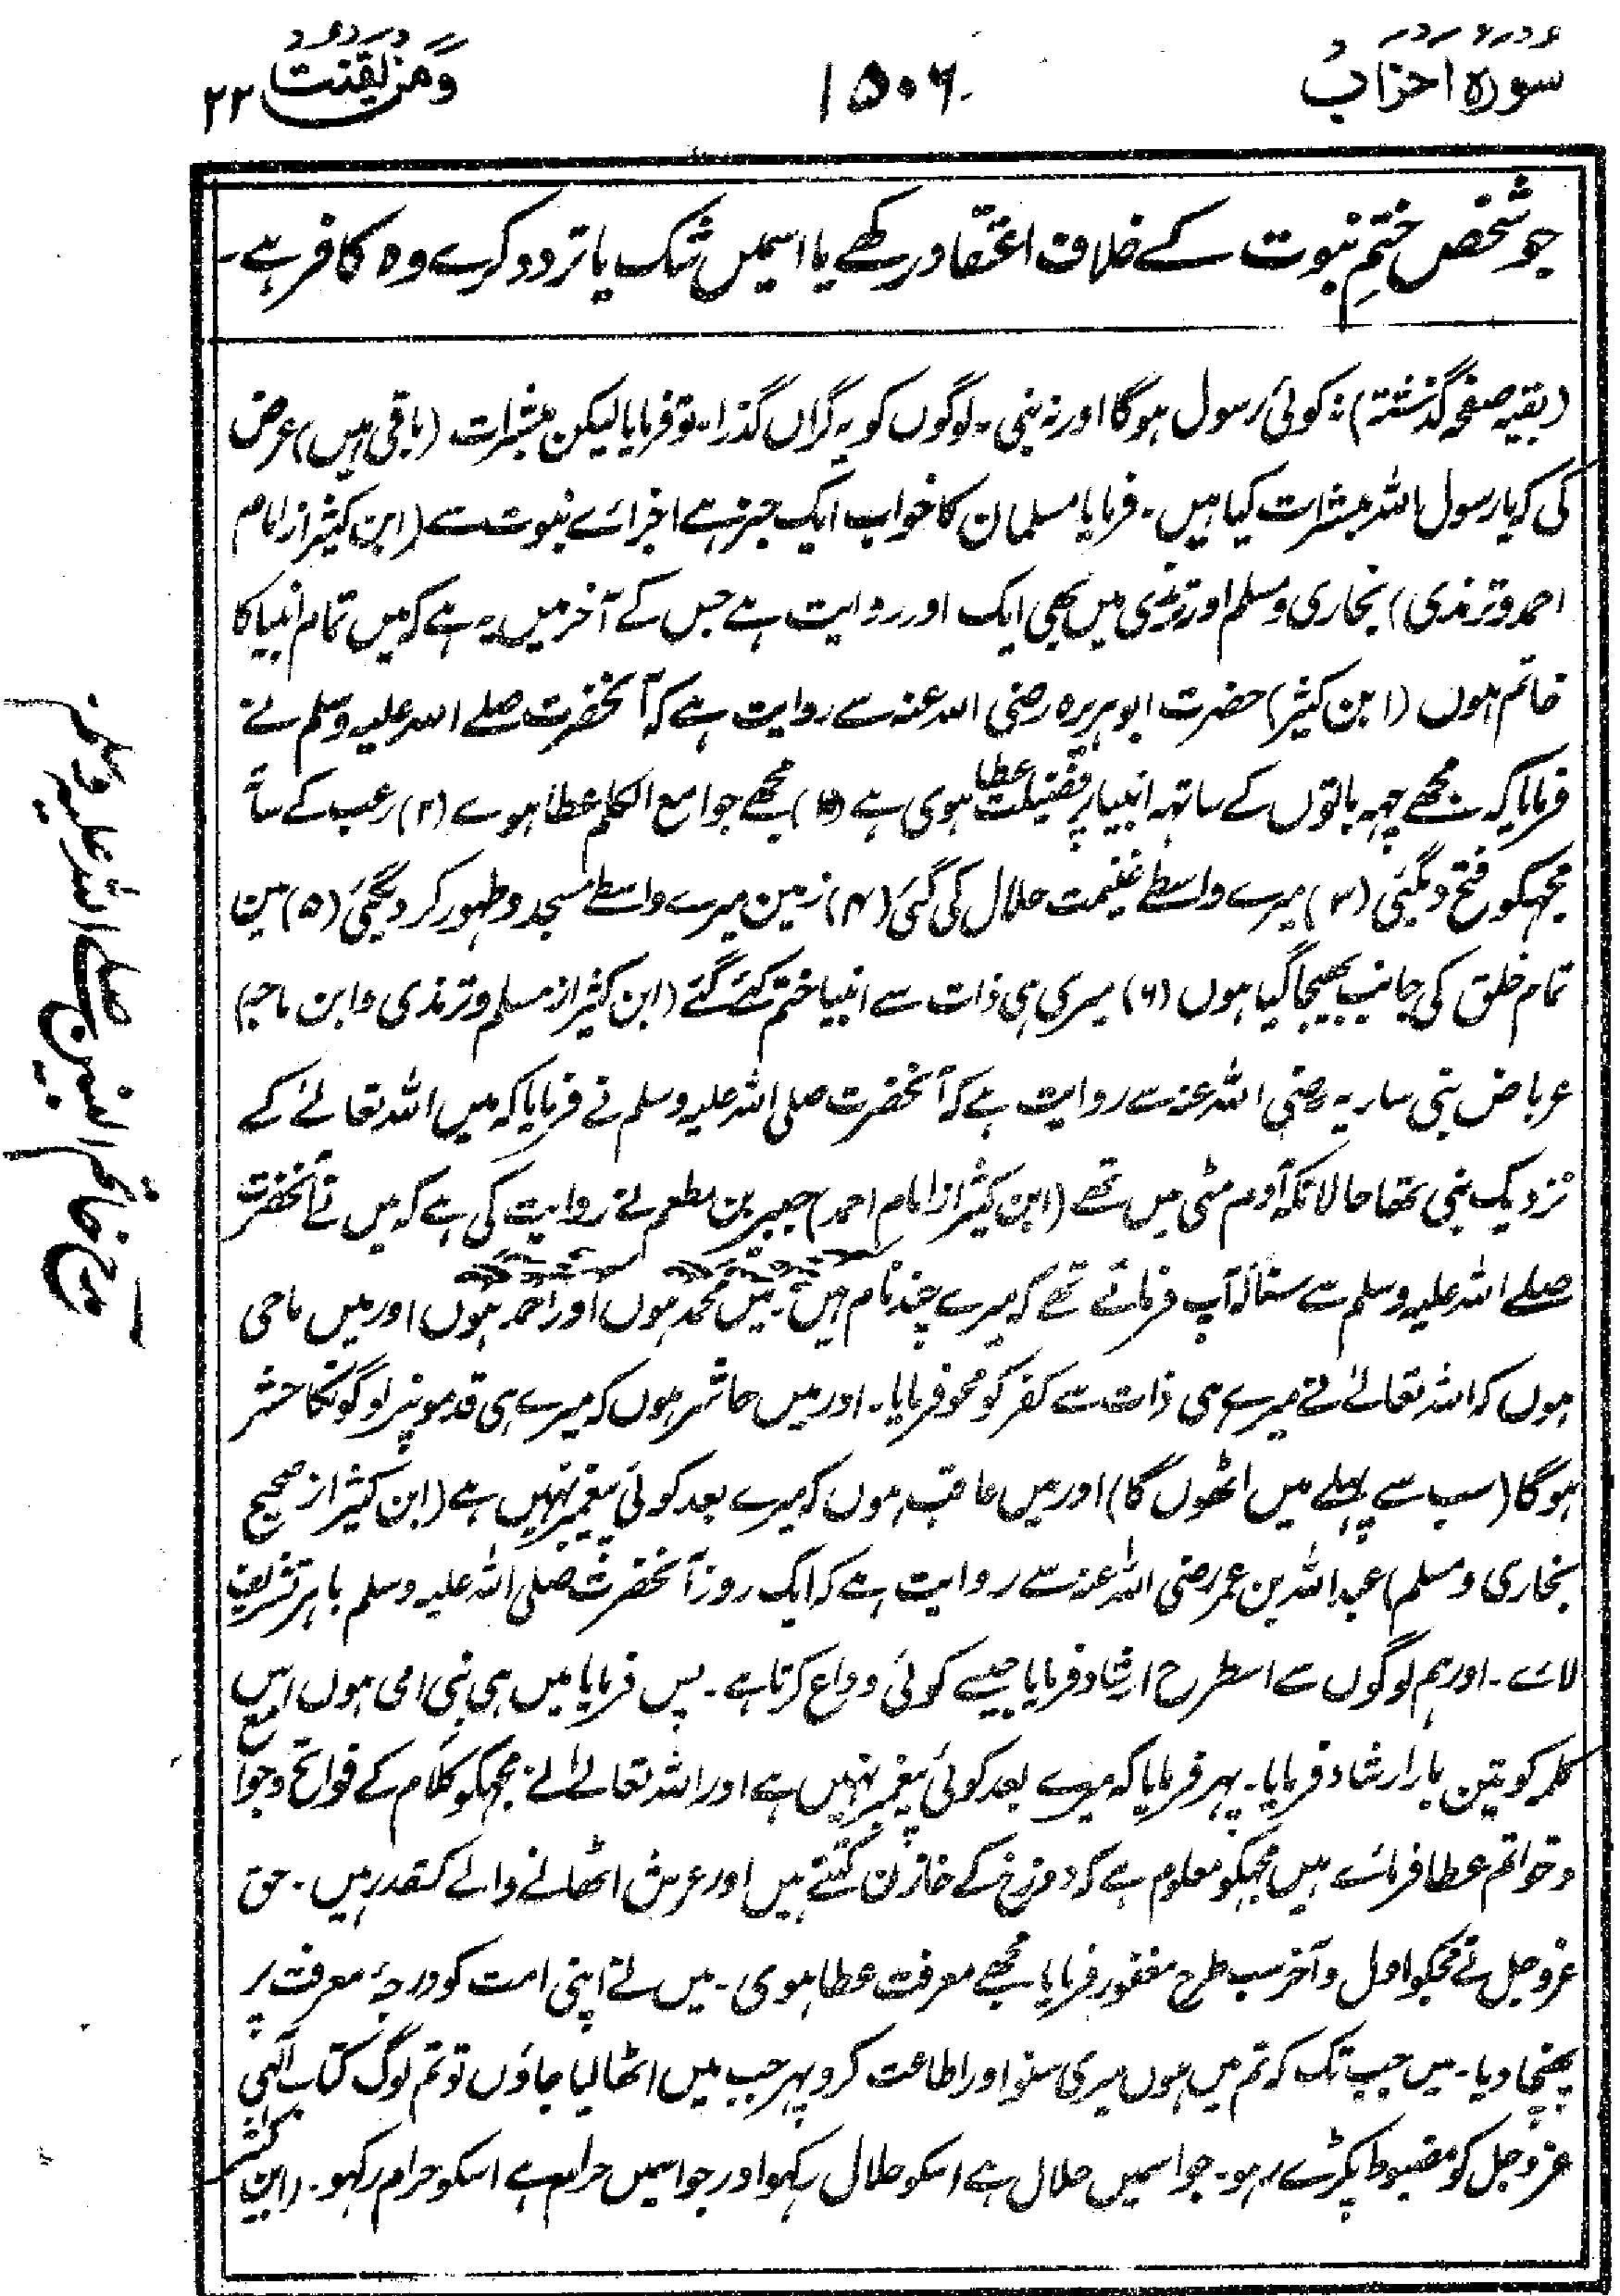 سورہ احزاب
۱۵۰۶
ومن یقنت ۲۲
جو شخص ختمِ نبوت کے خلاف اعتقاد رکھے یا اسمیں شک یا تردد کرے وہ کافر ہے۔
(بقیہ صفحہ گذشتہ) نہ کوئی رسول ہوگا اور نہ نبی۔ لوگوں کو یہ گراں گذرا۔ تو فرمایا لیکن مبشرات (باقی ہیں) عرض
کی کہ یا رسول اللہ مبشرات کیا ہیں۔ فرمایا مسلمان کا خواب ایک جز ہے اجزاے نبوت سے (ابن کثیر از امام
احمد و ترمذی) بخاری و مسلم اور ترمذی میں بھی ایک اور روایت ہے جس کے آخر میں یہ ہے کہ میں تمام انبیا کا
خاتم ہوں (ابن کثیر) حضرت ابو ہریرہ رضی اللہ عنہ سے روایت ہے کہ آنحضرت صلے اللہ علیہ وسلم نے
فرمایا کہ مجھے چہہ باتوں کے ساتہہ انبیا پر فضیلت عطا ہوی ہے (۱) مجھے جوامع الکلم عطا ہوے (۲) رعب کے ساتھ
مجہکو فتح دیگئی (۳) میرے واسطے غنیمت حلال کی گئی (۴) زمین میرے واسطے مسجد و طہور کر دیگئی (۵) مین
تمام خلق کی جانب بھیجا گیا ہوں (۶) میری ہی ذات سے انبیا ختم کئے گئے (ابن کثیر از مسلم و ترمذی و ابن ماجہ)
عرباض بنی ساریہ رضی اللہ عنہ سے روایت ہے کہ آنحضرت صلی اللہ علیہ وسلم نے فرمایا کہ میں اللہ تعالےٰ کے
نزدیک نبی تھا حالانکہ آدم مٹی میں تھے (ابن کثیر از امام احمد) جبیر بن مطعم نے روایت کی ہے کہ میں نے آنحضرت
صلے اللہ علیہ وسلم سے سنا کہ آپ فرماتے تھے کہ میرے چند نام ہیں۔ میں محمد ہوں اور احمد ہوں اور میں ماحی
ہوں کہ اللہ تعالےٰ نے میرے ہی ذات سے کفر کو محو فرمایا۔ اور میں حاشر ہوں کہ میرے ہی قدمونپر لوگونکا حشر
ہوگا (سب سے پہلے میں اٹھوں گا) اور میں عاقب ہوں کہ میرے بعد کوئی پیغمبر نہیں ہے (ابن کثیر از صحیح
بخاری و مسلم) عبد اللہ بن عمر رضی اللہ عنہ سے روایت ہے کہ ایک روز آنحضرت صلی اللہ علیہ وسلم باہر تشریف
لاے۔ اور ہم لوگوں سے اسطرح ارشاد فرمایا جیسے کوئی وداع کرتا ہے۔ پس فرمایا میں ہی نبی امی ہوں اس
کلمہ کو تین بار ارشاد فرمایا۔ پہر فرمایا کہ میرے بعد کوئی پیغمبر نہیں ہے اور اللہ تعالےٰ نے مجہکو کلام کے فواتح و جوامع
و خواتم عطا فرماے ہیں مجہکو معلوم ہے کہ دوزخ کے خازن کتنے ہیں اور عرش اٹھانے والے کسقدر ہیں۔ حق
عز و جل نے مجکو اول و آخر سب طرح مغفور فرمایا مجھے معرفت عطا ہوی۔ میں نے اپنی امت کو درجۂ معرفت پر
پہنچا دیا۔ میں جب تک کہ تم میں ہوں میری سنو اور اطاعت کرو پہر جب میں اٹھا لیا جاؤں تو تم لوگ کتاب الٰہی
عز و جل کو مضبوط پکڑے رہو۔ جو اسمیں حلال ہے اسکو حلال رکہو اور جو اسمیں حرام ہے اسکو حرام رکہو۔ (ابن کثیر
خاتم النبیین صلے اللہ علیہ وسلم